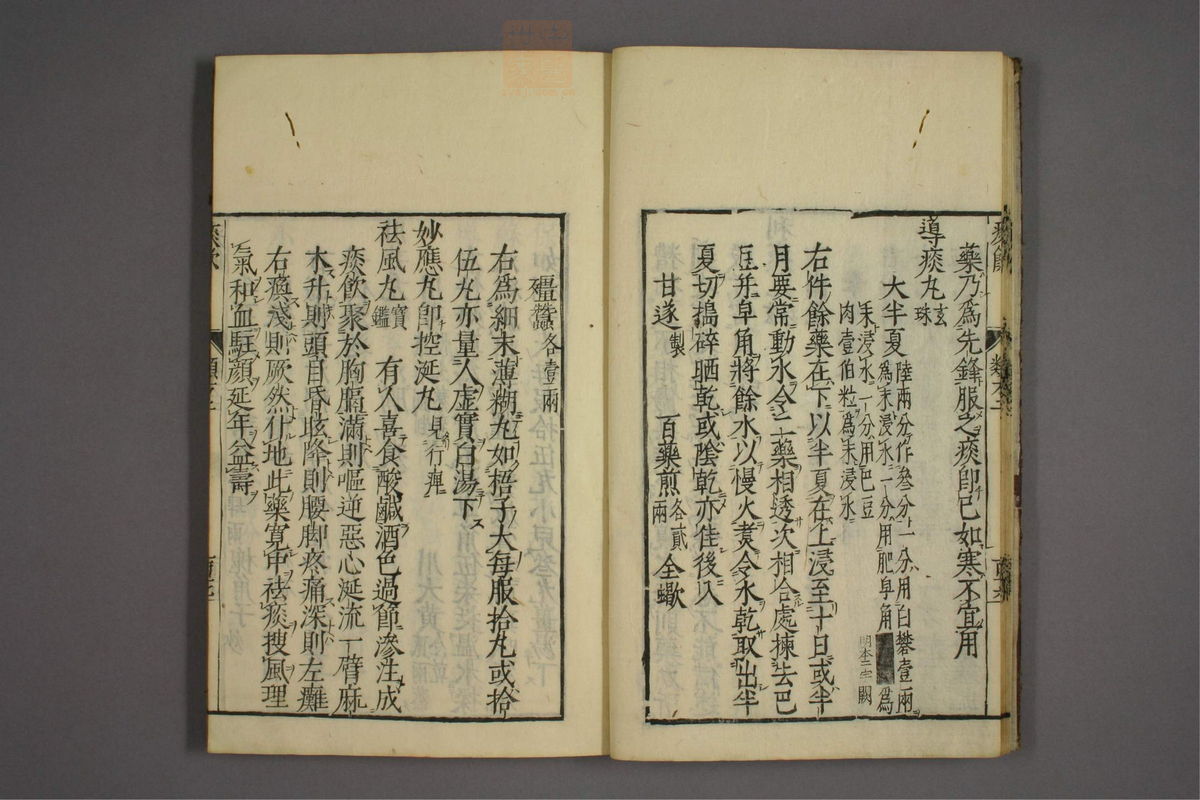 藥乃爲先鋒服之痰卽已如寒不宜用
導痰丸玄珠
大半夏陸兩分作叁分一分用白礬壹兩
爲末浸水一分用肥皁角
爲
末浸水一分用巴豆
明本二字闕
肉壹伯粒爲末浸水
右件餘藥在下以半夏在上浸至十日或半
月要常動水令二藥相透次相合處揀去巴
豆并皁角將餘水以慢火煑令水乾取出半
夏切搗碎晒乾或陰乾亦徃後入
甘遂製 百藥煎各貳兩 全蠍
殭蠶各壹兩
右爲細末薄糊丸如梧子大每服拾丸或拾
伍丸亦量人虛實白湯下
妙應丸卽控涎丸見行痺
祛風丸寶鑑 有人喜食酸鹹酒色過節滲注成
痰飲聚於胸膈滿則嘔逆惡心涎流一臂麻
木升則頭目昏眩降則腰脚疼痛深則左癱
右瘓淺則厥然仆地此藥寛中祛痰搜風理
氣和血駐顔延年益壽
痰飲
類方